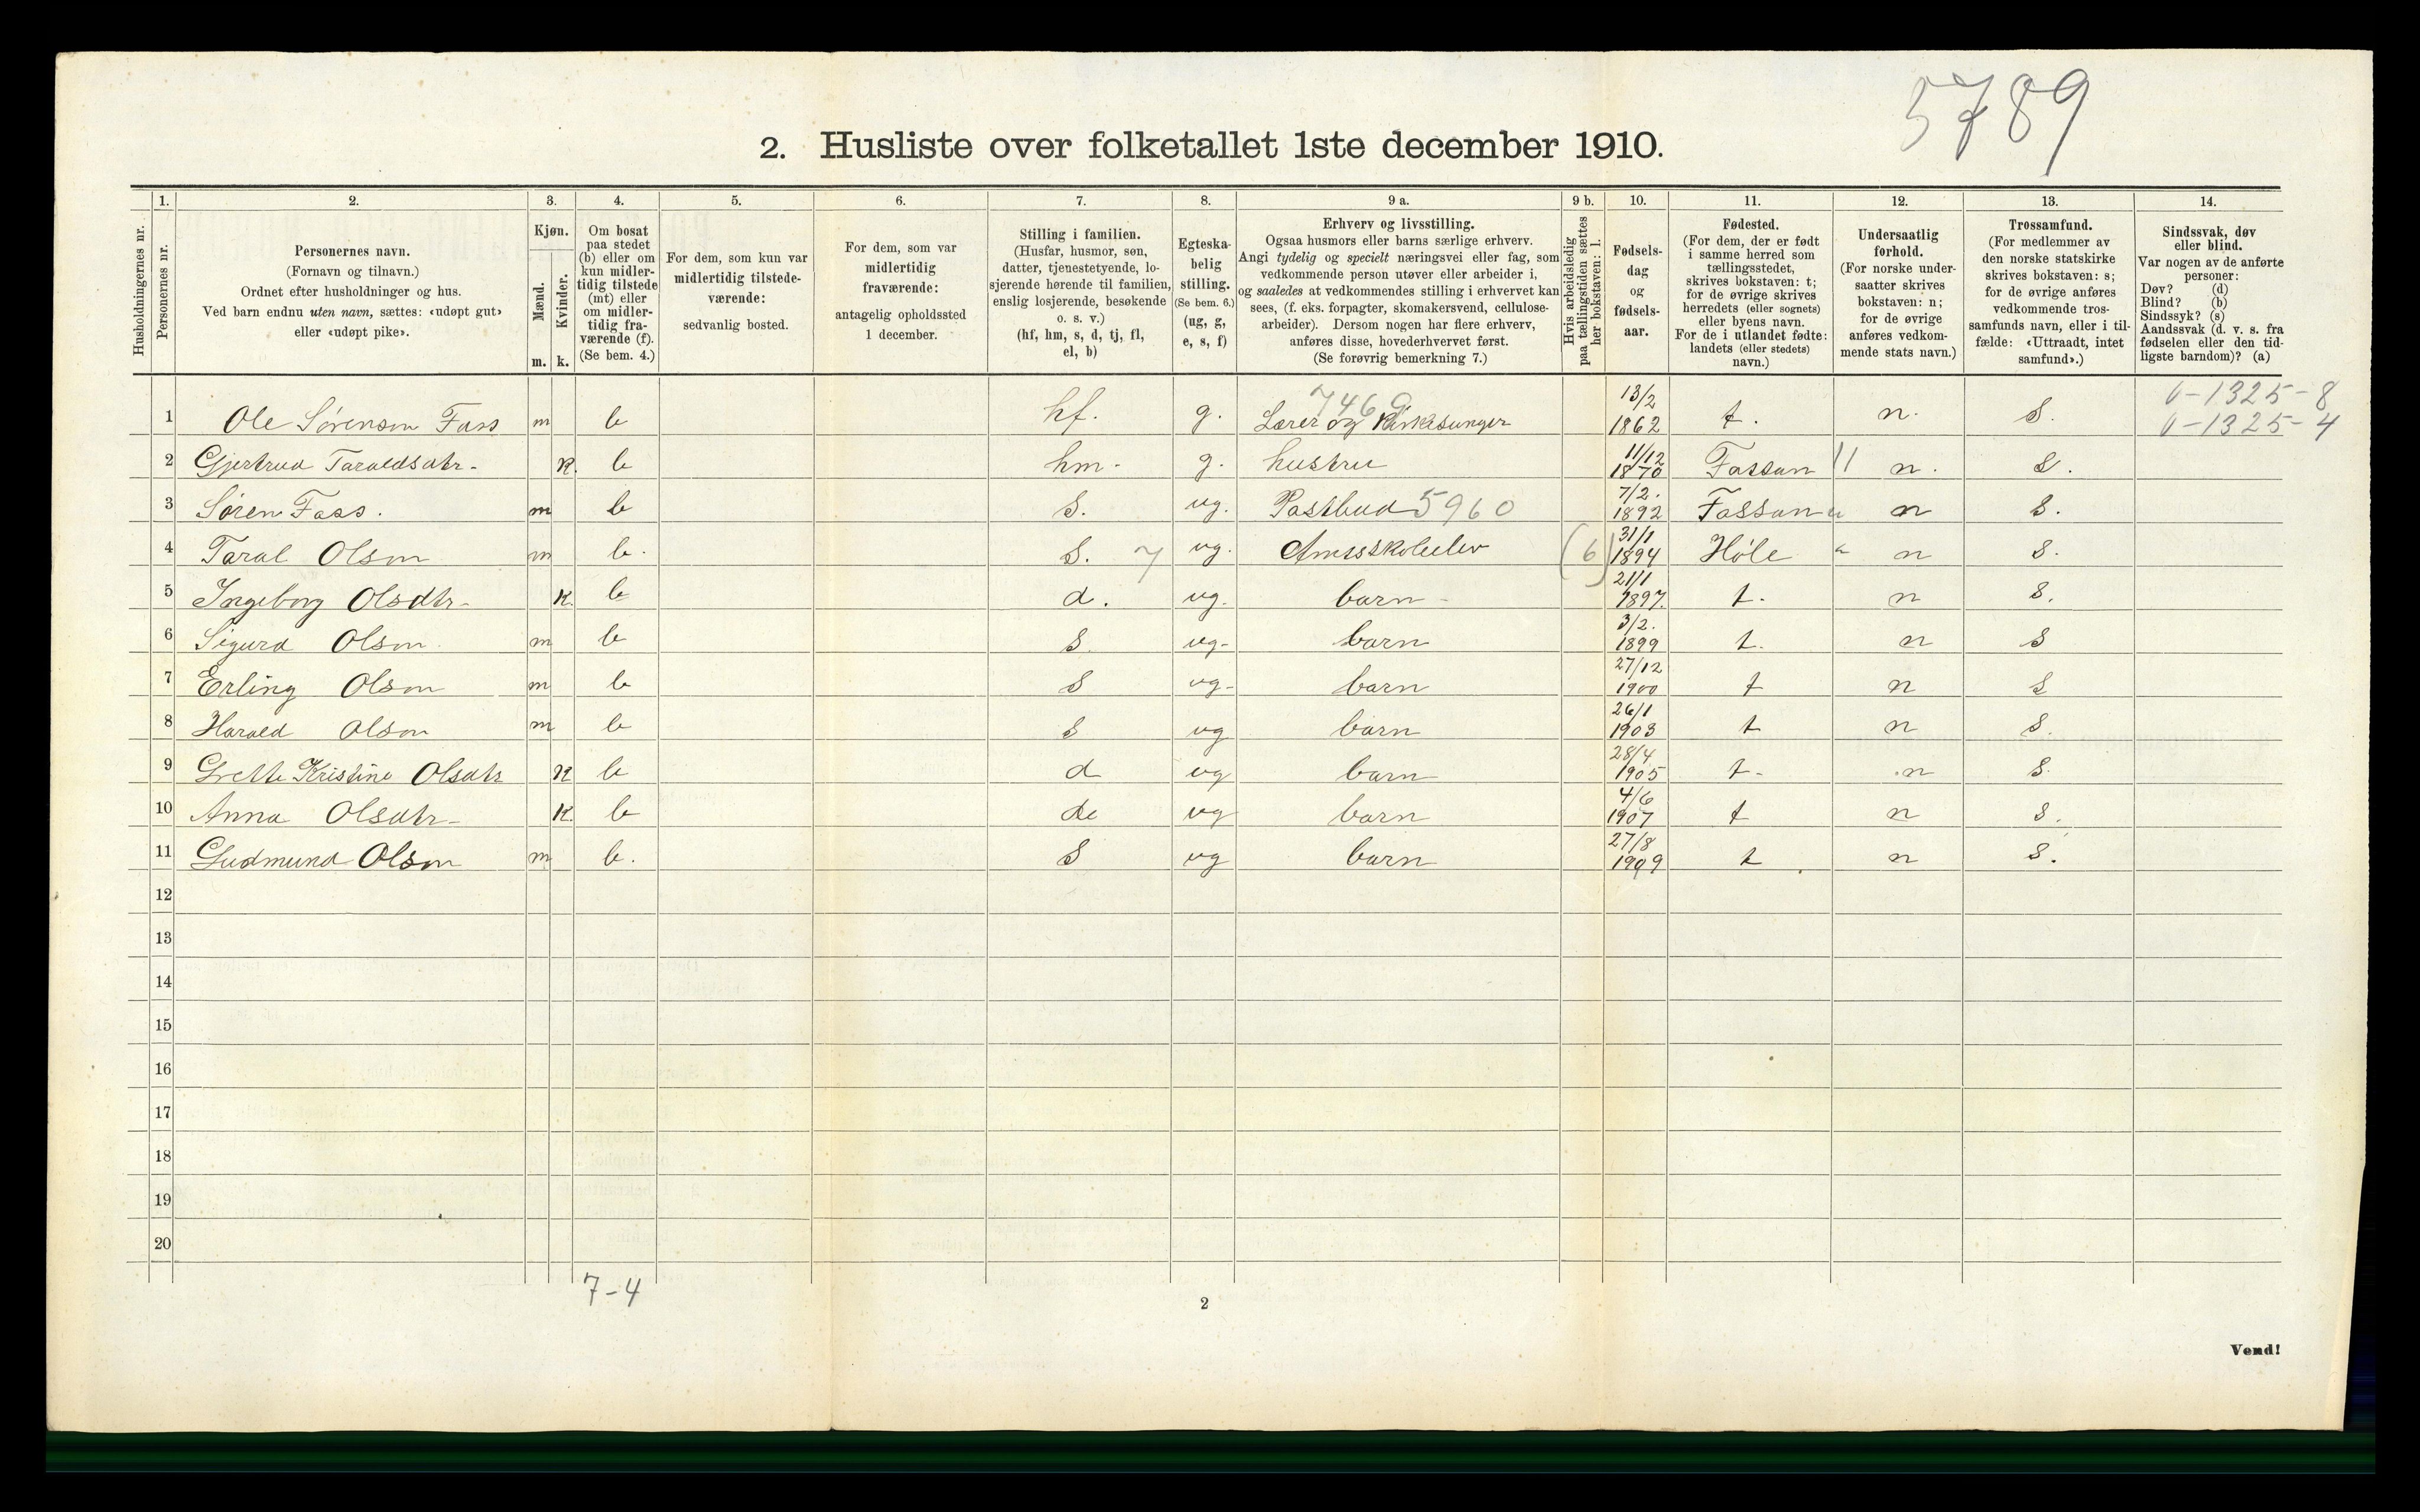 5789
2. Husliste over folketallet 1ste december 1910.
Husholdningernes nr.
1. Personernes nr.
2. Personernes navn.
(Fornavn og tilnavn.)
Ordnet efter husholdninger og hus.
Ved barn endnu uten navn, sættes: «udøpt gut»
eller «udøpt pike».
3. Kjøn.
Mænd. m.
Kvinder. k.
4. Om bosat
paa stedet
(b) eller om
kun midler-
tidig tilstede
(mt) eller
om midler-
tidig fra-
værende (f).
(Se bem. 4.)
5. For dem, som kun var
midlertidig tilstede-
værende:
sedvanlig bosted.
6. For dem, som var
midlertidig
fraværende:
antagelig opholdssted
1 december.
7. Stilling i familien.
(Husfar, husmor, søn,
datter, tjenestetyende, lo-
sjerende hørende til familien,
enslig losjerende, besøkende
o. s. v.)
(hf, hm, s, d, tj, fl,
el, b)
8. Egteska-
belig
stilling.
(Se bem. 6.)
(ug, g,
e, s, f)
9 a. Erhverv og livsstilling.
Ogsaa husmors eller barns særlige erhverv.
Angi tydelig og specielt næringsvei eller fag, som
vedkommende person utøver eller arbeider i,
og saaledes at vedkommendes stilling i erhvervet kan
sees, (f. eks. forpagter, skomakersvend, cellulose-
arbeider). Dersom nogen har flere erhverv,
anføres disse, hovederhvervet først.
(Se forøvrig bemerkning 7.)
9 b. Hvis arbeidsledig
paa tællingstiden sættes
her bokstaven: l.
10. Fødsels-
dag
og
fødsels-
aar.
11. Fødested.
(For dem, der er født
i samme herred som
tællingsstedet,
skrives bokstaven: t;
for de øvrige skrives
herredets (eller sognets)
eller byens navn.
For de i utlandet fødte:
landets (eller stedets)
navn.)
12. Undersaatlig
forhold.
(For norske under-
saatter skrives
bokstaven: n;
for de øvrige
anføres vedkom-
mende stats navn.)
13. Trossamfund.
(For medlemmer av
den norske statskirke
skrives bokstaven: s;
for de øvrige anføres
vedkommende tros-
samfunds navn, eller i til-
fælde: «Uttraadt, intet
samfund».)
14. Sindssvak, døv
eller blind.
Var nogen av de anførte
personer:
Døv? (d)
Blind? (b)
Sindssyk? (s)
Aandssvak (d. v. s. fra
fødselen eller den tid-
ligste barndom)? (a)
0-1325-8
0-1325-4
1 Ole Sørenson Foss m b hf. g. Lærer og Kirkesunger 13/2 1862 t. n. S.
2 Gjertrud Taraldsdtr- K. b hm- g. hustru 11/12 1870 Fossan 11 n. S.
3 Søren Foss. m b S. ug. Postbud 5960 7/2. 1892 Fossan n S.
4 Taral Olson m b. S. 7 ug. Amtsskoleelev (6) 31/1 1894 Høle " n S.
5 Ingeborg Olsdtr- K. b d. ug. barn- 21/1 1897. t. n S.
6 Sigurd Olson m b S. ug- barn 3/2. 1899 t. n S
7 Erling Olson m b S ug- barn 27/12 1900 t n S
8 Harald Olson m b S ug barn 26/1 1903 t n S.
9 Grethe Kristine Olsdtr K b d ug barn 28/4 1905 t- n S.
10 Anna Olsdtr- K. b d ug barn 4/6 1907 t n S.
11 Gudmund Olson m b. S ug barn 27/8 1909 t n S.
12
13
14
15
16
17
18
19
20
7-4
2
Vend!